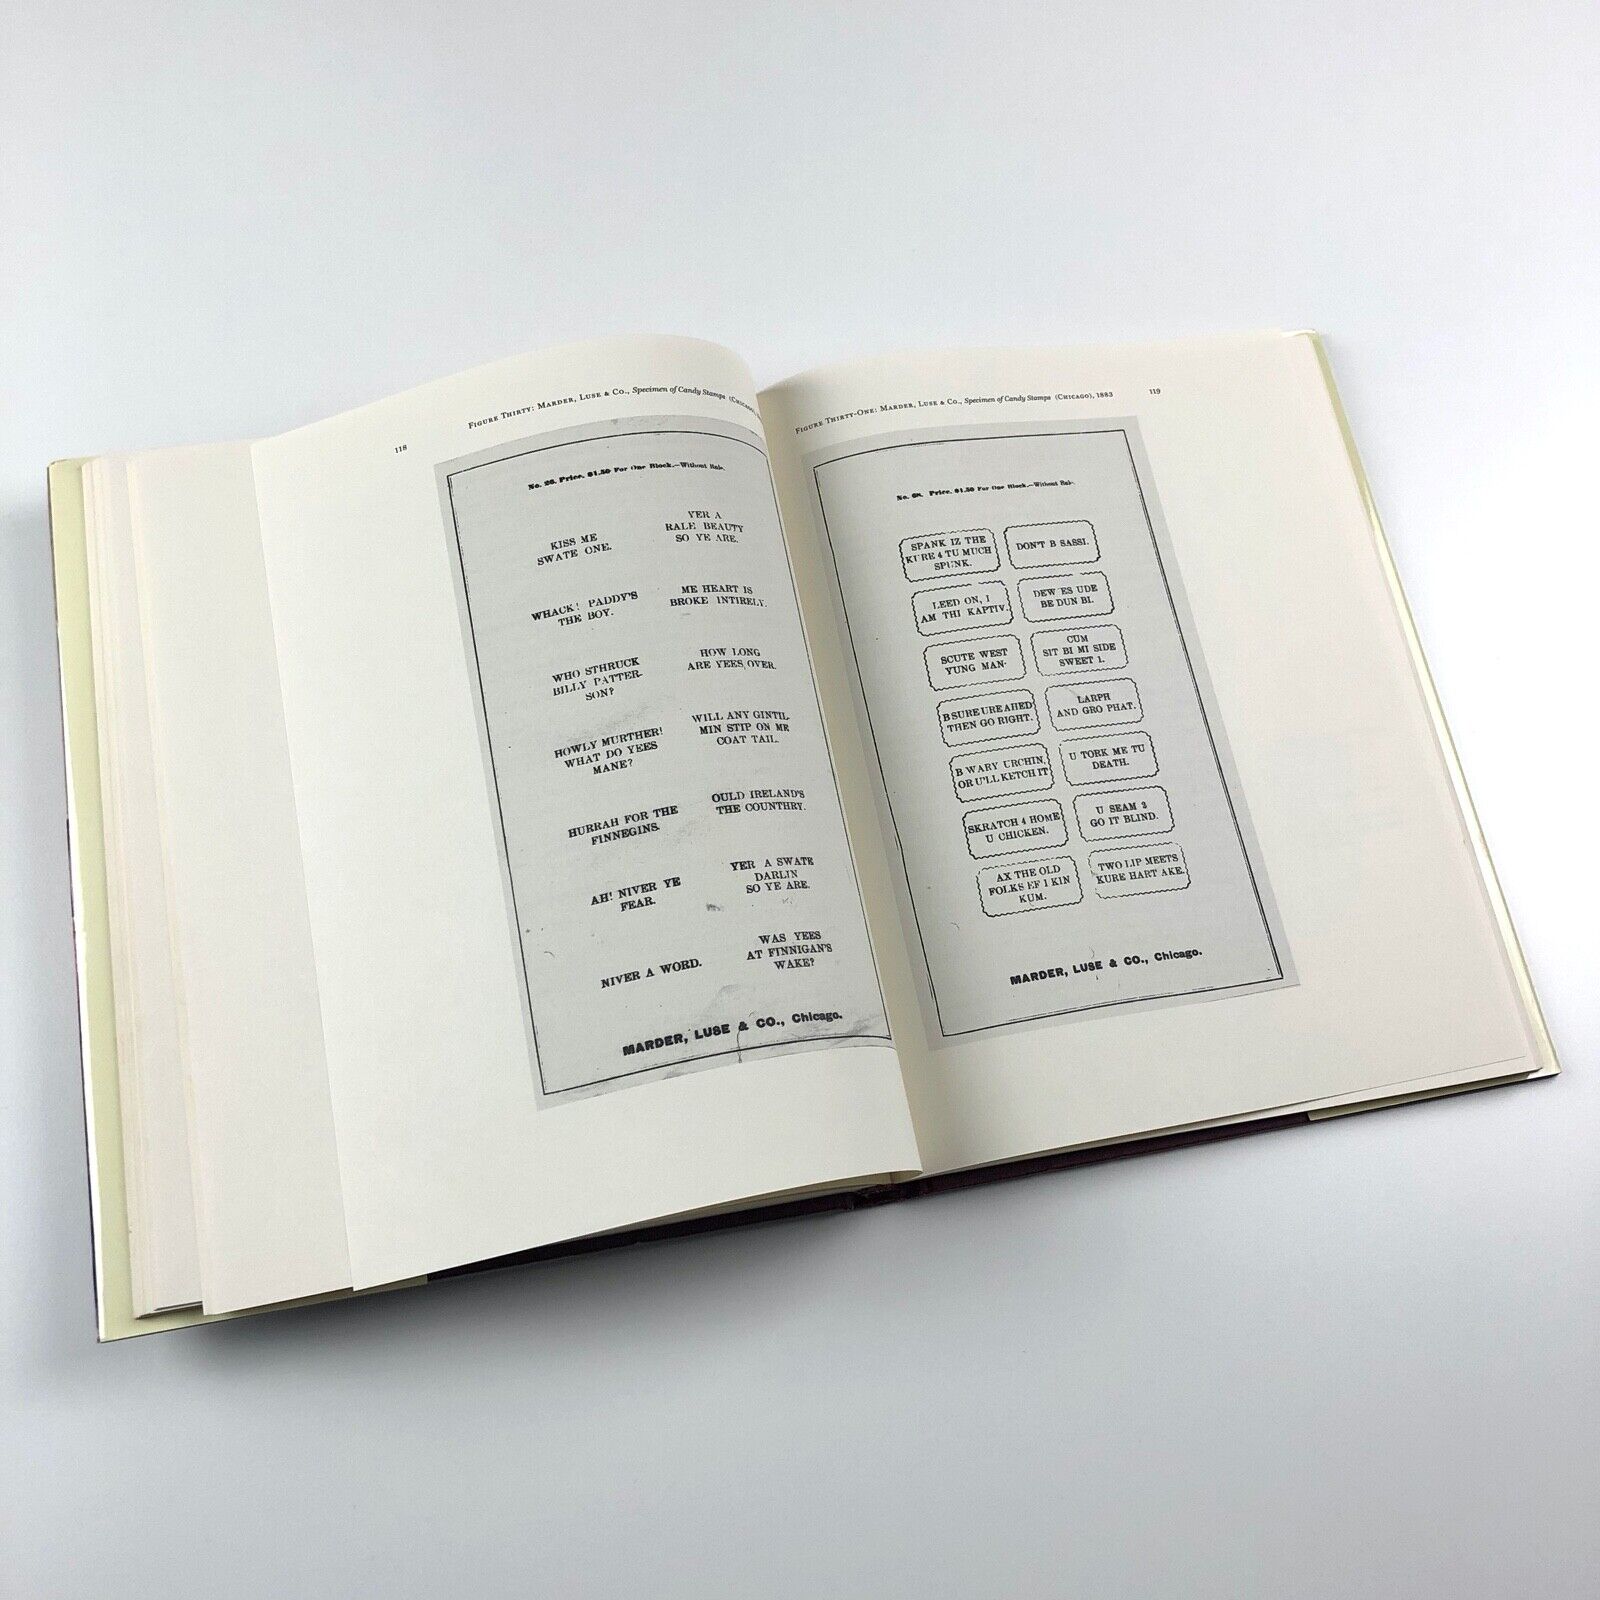 118
FIGURE THIRTY: MARDER, LUSE & CO., Specimen of Candy Stamps (CHICAGO),
No. 26. Price, $1.50 For One Block.—Without Rule.
KISS ME
SWATE ONE.
YER A
RALE BEAUTY
SO YE ARE.
WHACK! PADDY'S
THE BOY.
ME HEART IS
BROKE INTIRELY.
WHO STHRUCK
BILLY PATTER-
SON?
HOW LONG
ARE YEES OVER.
HOWLY MURTHER!
WHAT DO YEES
MANE?
WILL ANY GINTIL-
MIN STIP ON ME
COAT TAIL.
HURRAH FOR THE
FINNEGINS.
OULD IRELAND'S
THE COUNTHRY.
AH! NIVER YE
FEAR.
YER A SWATE
DARLIN
SO YE ARE.
NIVER A WORD.
WAS YEES
AT FINNIGAN'S
WAKE?
MARDER, LUSE & CO., Chicago.
FIGURE THIRTY-ONE: MARDER, LUSE & CO., Specimen of Candy Stamps (CHICAGO), 1883
119
No. 68. Price, $1.50 For One Block.—Without Rule.
SPANK IZ THE
KURE 4 TU MUCH
SPUNK.
DON'T B SASSI.
LEED ON, I
AM THI KAPTIV.
DEW ES UDE
BE DUN BI.
SCUTE WEST
YUNG MAN.
CUM
SIT BI MI SIDE
SWEET 1.
B SURE URE AHED
THEN GO RIGHT.
LARPH
AND GRO PHAT.
B WARY URCHIN,
OR U'LL KETCH IT
U TORK ME TU
DEATH.
SKRATCH 4 HOME
U CHICKEN.
U SEAM 2
GO IT BLIND.
AX THE OLD
FOLKS EF I KIN
KUM.
TWO LIP MEETS
KURE HART AKE.
MARDER, LUSE & CO., Chicago.